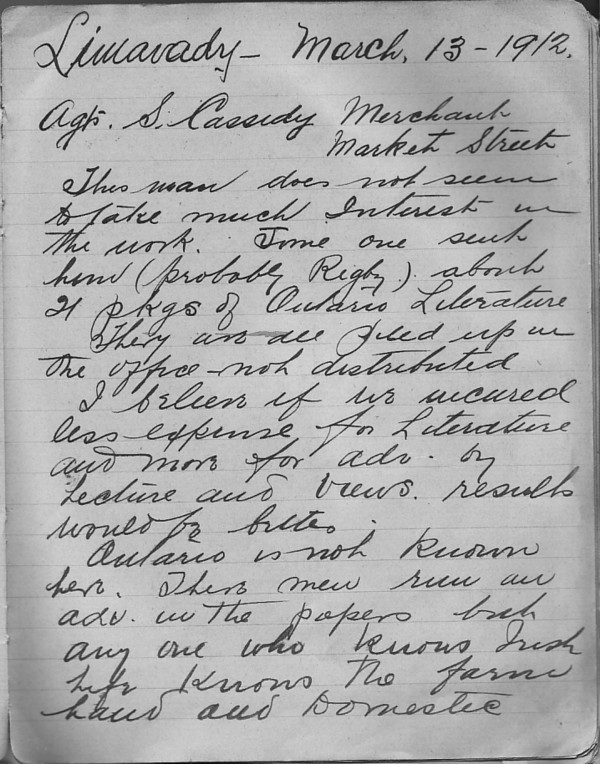 Limavady - March. 13 - 1912.
Agt. S. Cassidy Merchant
Market Street
This man does not seem
to take much Interest in
the work. Some one sent
him (probably Rigby). about
21 pkgs of Ontario Literature
They are all piled up in
the office - not distributed
I believe if we incured
less expense for Literature
and more for adv. by
Lecture and Views. results
would be better.
Ontario is not Known
here. These men run an
adv. in the papers but
any one who Knows Irish
Life Knows the farm
hand and Domestic